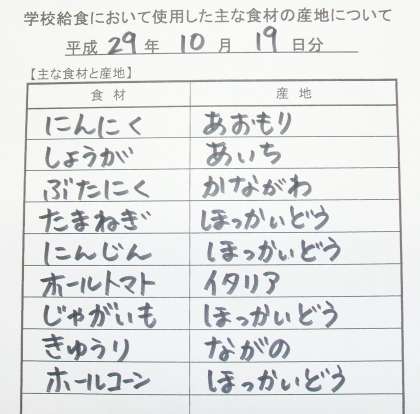 学校給食において使用した主な食材の産地について
平成 29 年 10 月 19 日分
【主な食材と産地】
食 材 産 地
にんにく あおもり
しょうが あいち
ぶたにく かながわ
たまねぎ ほっかいどう
にんじん ほっかいどう
ホールトマト イタリア
じゃがいも ほっかいどう
きゅうり ながの
ホールコーン ほっかいどう